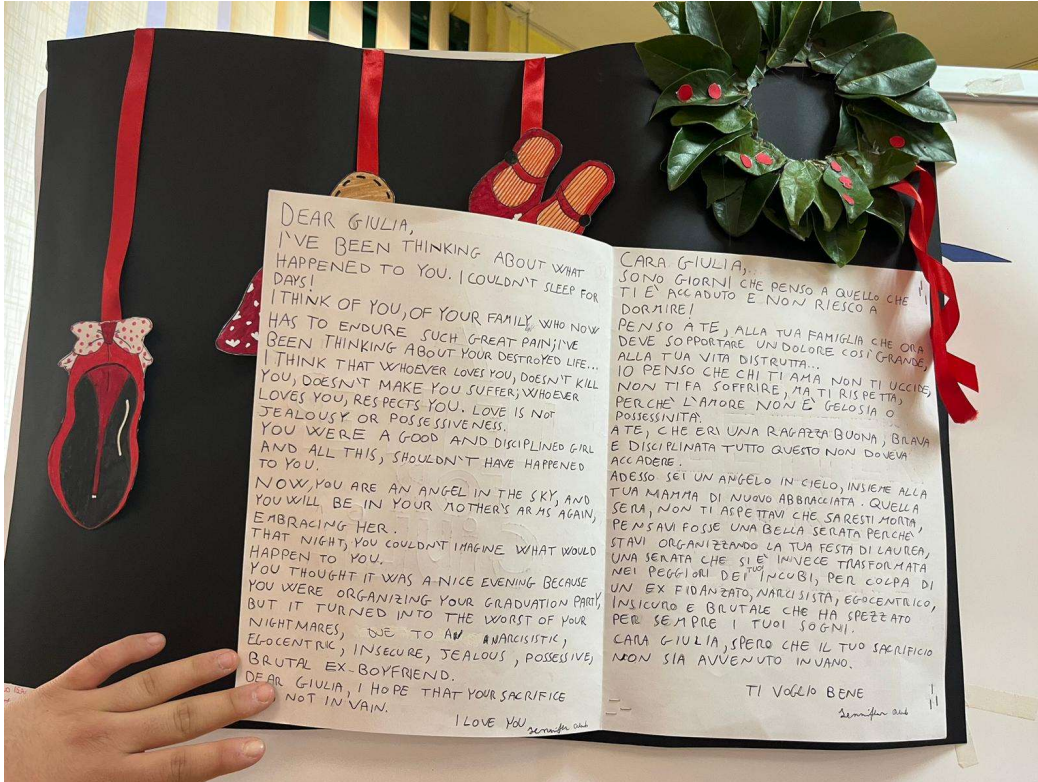 DEAR GIULIA,
I'VE BEEN THINKING ABOUT WHAT
HAPPENED TO YOU. I COULDN'T SLEEP FOR
DAYS!
I THINK OF YOU, OF YOUR FAMILY WHO NOW
HAS TO ENDURE SUCH GREAT PAIN; I'VE
BEEN THINKING ABOUT YOUR DESTROYED LIFE...
I THINK THAT WHOEVER LOVES YOU, DOESN'T KILL
YOU, DOESN'T MAKE YOU SUFFER; WHOEVER
LOVES YOU, RESPECTS YOU. LOVE IS NOT
JEALOUSY OR POSSESSIVENESS.
YOU WERE A GOOD AND DISCIPLINED GIRL
AND ALL THIS, SHOULDN'T HAVE HAPPENED
TO YOU.
NOW, YOU ARE AN ANGEL IN THE SKY, AND
YOU WILL BE IN YOUR MOTHER'S ARMS AGAIN,
EMBRACING HER.
THAT NIGHT, YOU COULDN'T IMAGINE WHAT WOULD
HAPPEN TO YOU.
YOU THOUGHT IT WAS A NICE EVENING BECAUSE
YOU WERE ORGANIZING YOUR GRADUATION PARTY,
BUT IT TURNED INTO THE WORST OF YOUR
NIGHTMARES, TO A NARCISISTIC,
EGOCENTRIC, INSECURE, JEALOUS, POSSESSIVE,
BRUTAL EX-BOYFRIEND.
DEAR GIULIA, I HOPE THAT YOUR SACRIFICE
NOT IN VAIN.
I LOVE YOU
Jennifer
CARA GIULIA,..
SONO GIORNI CHE PENSO A QUELLO CHE
TI È ACCADUTO E NON RIESCO A
DORMIRE!
PENSO A TE, ALLA TUA FAMIGLIA CHE ORA
DEVE SOPPORTARE UN DOLORE COSÌ GRANDE,
ALLA TUA VITA DISTRUTTA...
IO PENSO CHE CHI TI AMA NON TI UCCIDE,
NON TI FA SOFFRIRE, MA TI RISPETTA,
PERCHÈ L'AMORE NON È GELOSIA O
POSSESSINITÀ.
A TE, CHE ERI UNA RAGAZZA BUONA, BRAVA
E DISCIPLINATA TUTTO QUESTO NON DOVEVA
ACCADERE.
ADESSO SEI UN ANGELO IN CIELO, INSIEME ALLA
TUA MAMMA DI NUOVO ABBRACCIATA. QUELLA
SERA, NON TI ASPETTAVI CHE SARESTI MORTA,
PENSAVI FOSSE UNA BELLA SERATA PERCHÈ
STAVI ORGANIZZANDO LA TUA FESTA DI LAUREA,
UNA SERATA CHE SI È INVECE TRASFORMATA
NEI PEGGIORI DEI TUOI INCUBI, PER COLPA DI
UN EX FIDANZATO, NARCISISTA, EGOCENTRICO,
INSICURO E BRUTALE CHE HA SPEZZATO
PER SEMPRE I TUOI SOGNI.
CARA GIULIA, SPERO CHE IL TUO SACRIFICIO
NON SIA AVVENUTO INVANO.
TI VOGLIO BENE
Jennifer